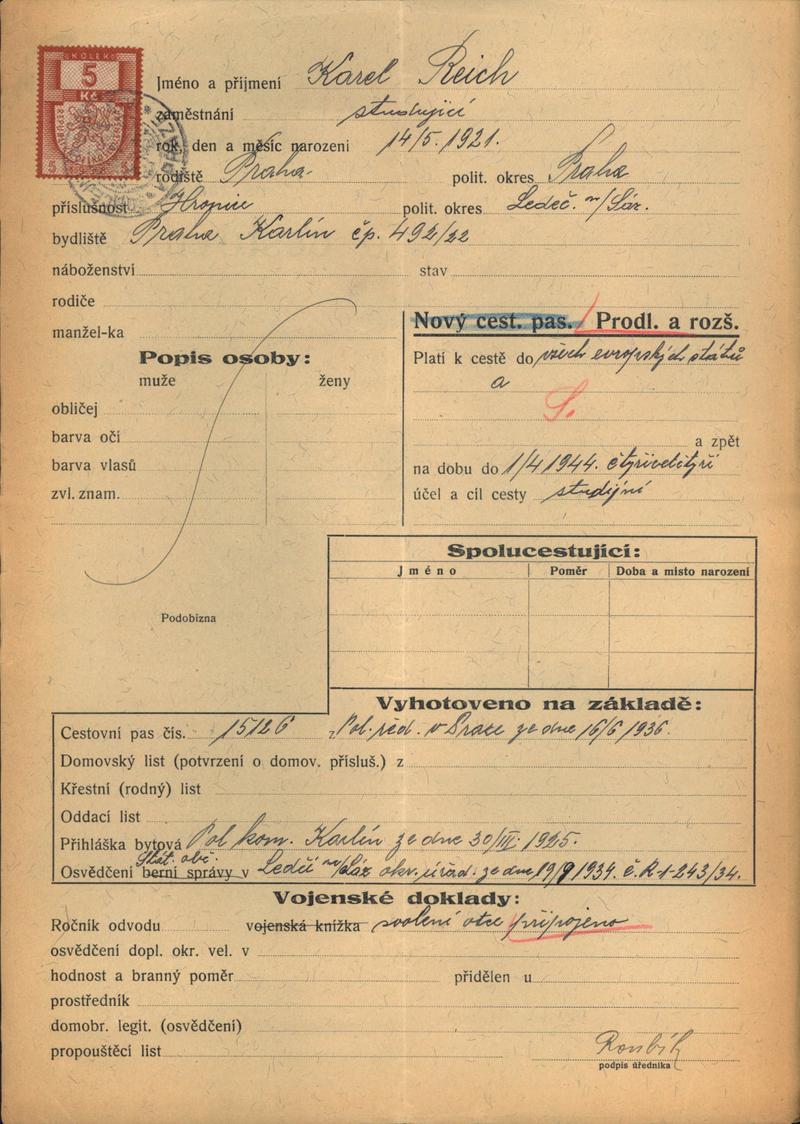 KOLEK
5
Kč
Jméno a příjmení Karel Reich
zaměstnání studující
rok, den a měsíc narození 14/5. 1921.
rodiště Praha polit. okres Praha
příslušnost Hronice polit. okres Ledeč n/Sáz.
bydliště Praha Karlín čp. 492/22
náboženství stav
rodiče
manžel-ka
Nový cest. pas. / Prodl. a rozš.
Popis osoby:
muže ženy
Platí k cestě do všech evropských států
a
S.
obličej
barva očí
a zpět
barva vlasů
na dobu do 1/4 1944. čtyřicetčtyři
zvl. znam.
účel a cíl cesty studijní
Spolucestující:
Jméno Poměr Doba a místo narození
Podobizna
Vyhotoveno na základě:
Cestovní pas čís. 15126 Pol. řed. v Praze ze dne 16/6 1936.
Domovský list (potvrzení o domov. přísluš.) z
Křestní (rodný) list
Oddací list
Přihláška bytová Pol kom. Karlín ze dne 30/III. 1925.
Stát. obč.
Osvědčení berní správy v Ledči n/Sáz okr. úřad. ze dne 19/9 1934. č. R 1-243/34.
Vojenské doklady:
Ročník odvodu vojenská knížka svolení otce připojeno
osvědčení dopl. okr. vel. v
hodnost a branný poměr přidělen u
prostředník
domobr. legit. (osvědčení)
propouštěcí list
podpis úředníka